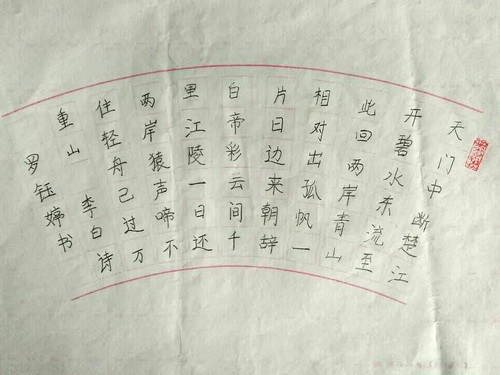 天门中断楚江
开碧水东流至
此回两岸青山
相对出孤帆一
片日边来朝辞
白帝彩云间千
里江陵一日还
两岸猿声啼不
住轻舟已过万
重山 李白诗
罗钰婷书